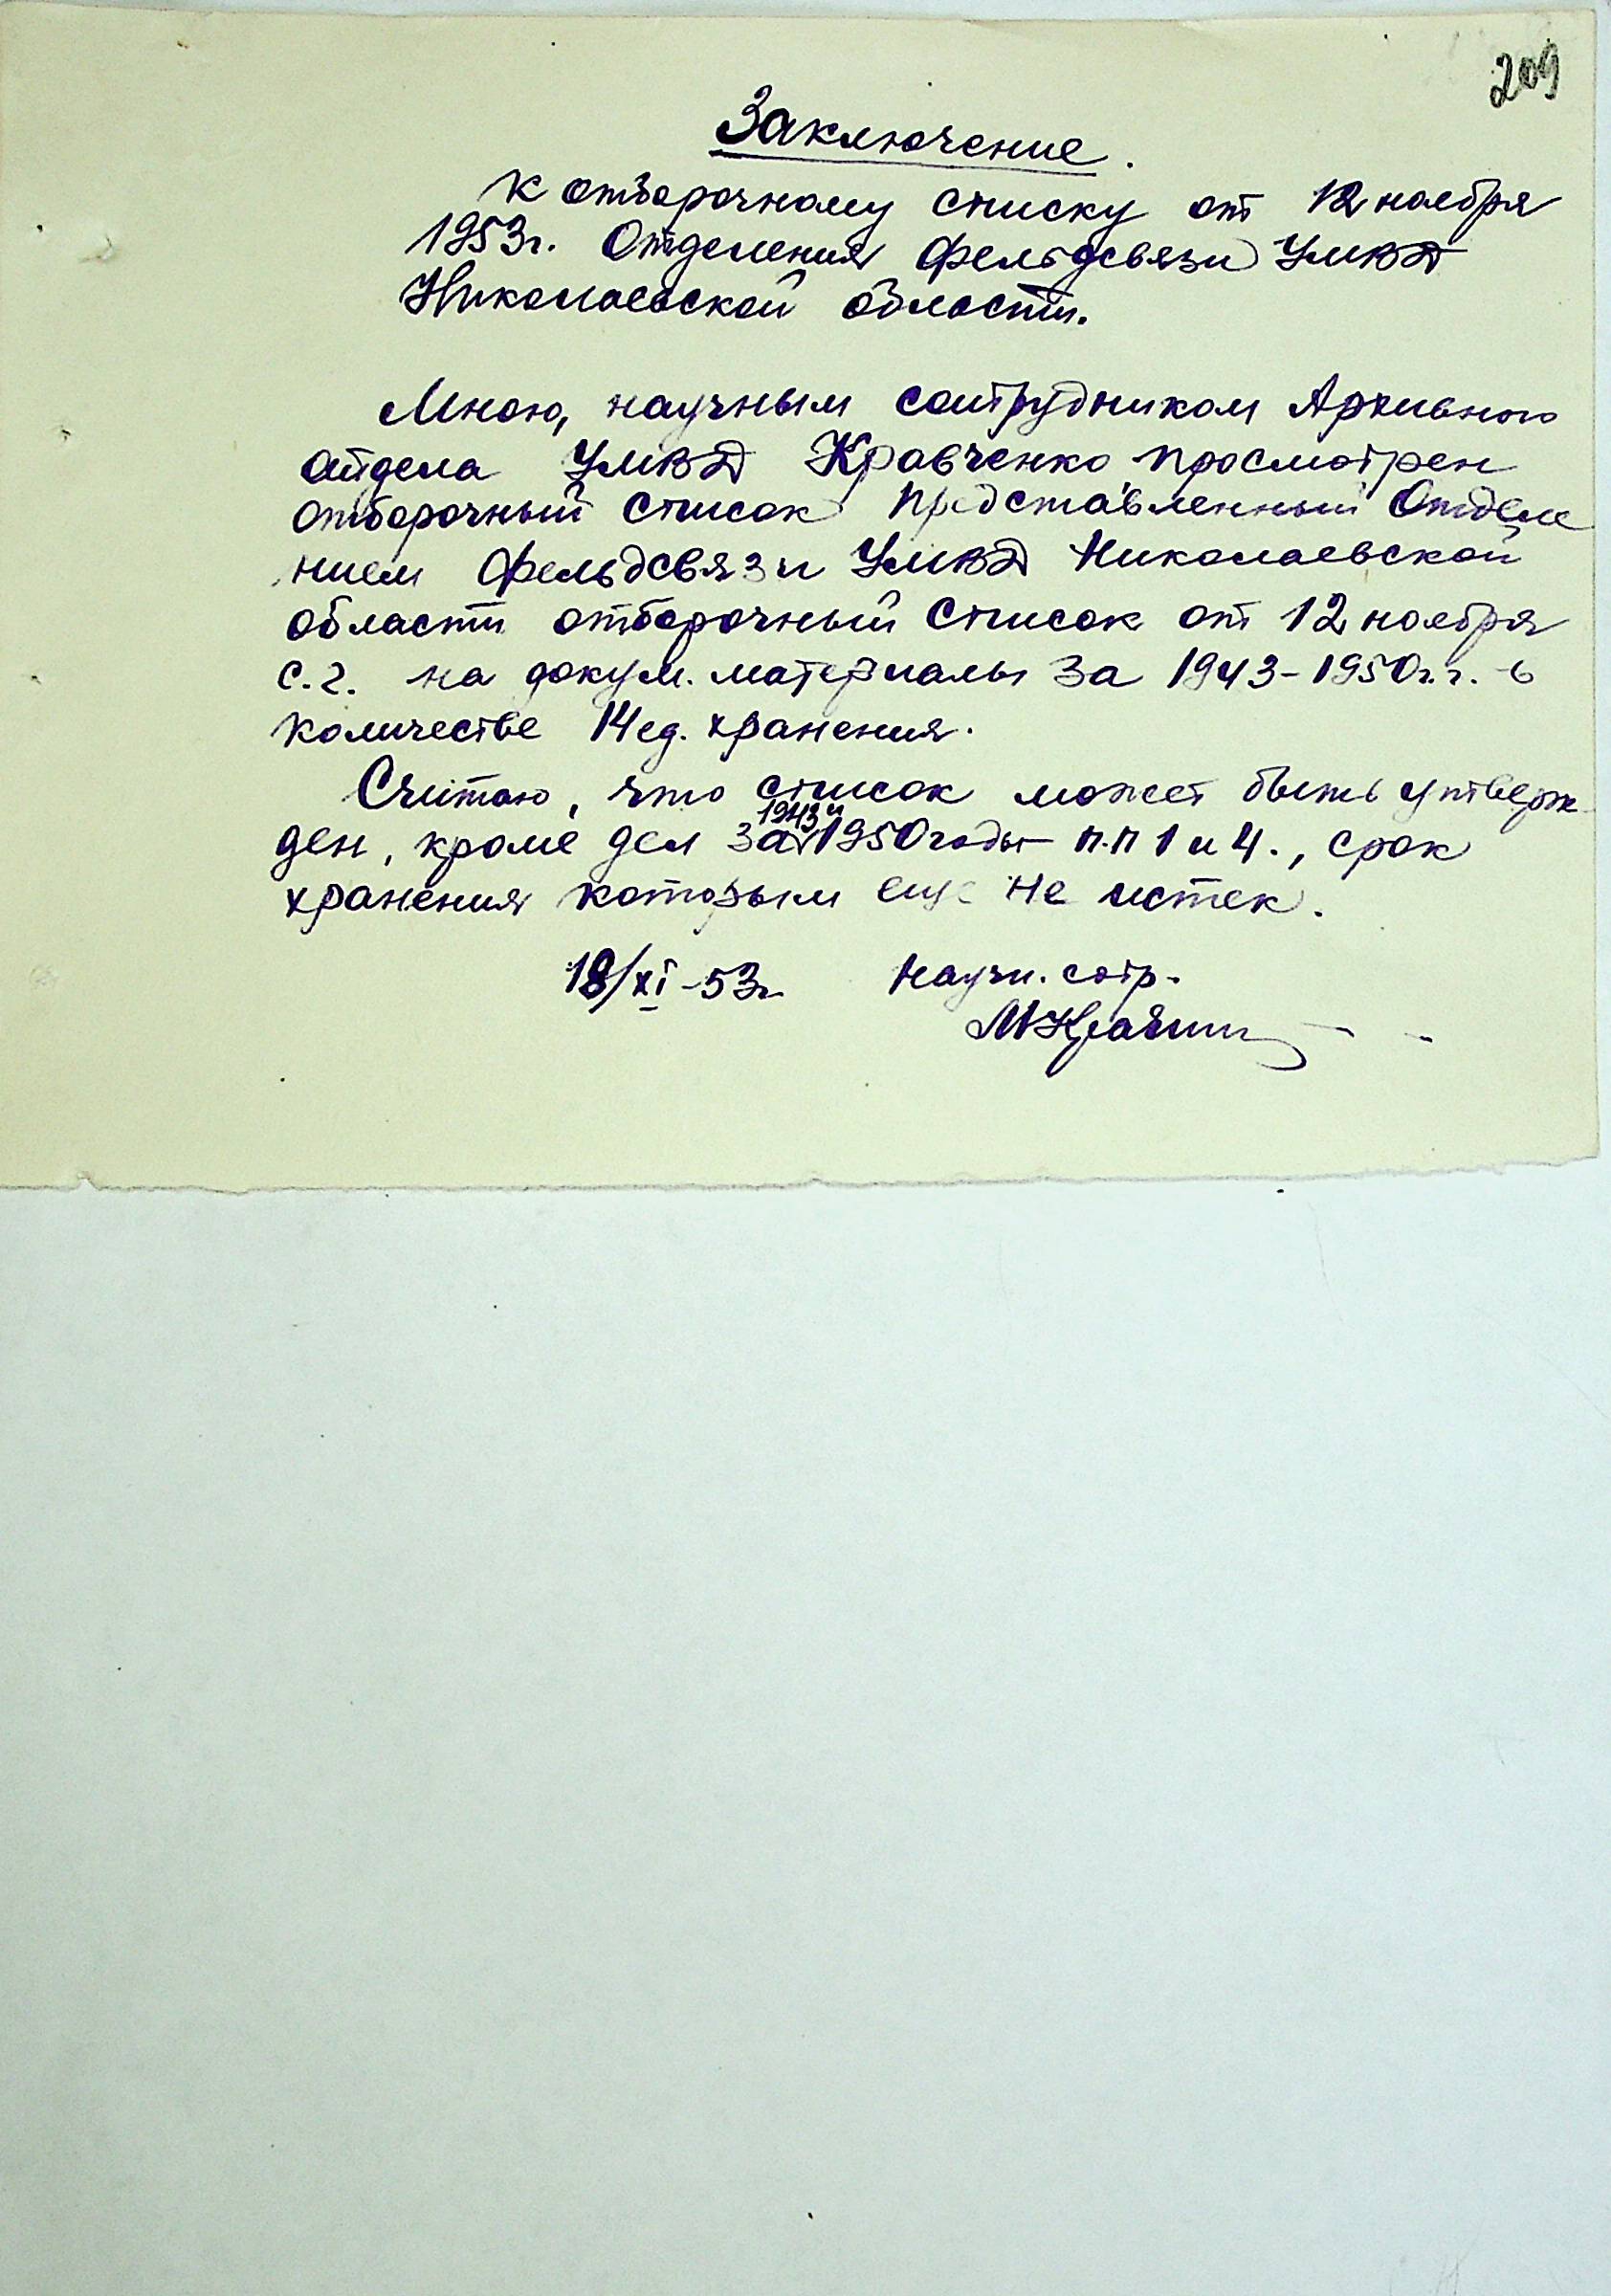 209
Заключение.
к отборочному списку от 12 ноября
1953г. Отделения фельдсвязи УМВД
Николаевской области.
Мною, научным сотрудником Архивного
отдела УМВД Кравченко просмотрен
отборочный список представленный Отделе
нием фельдсвязи УМВД Николаевской
области отборочный список от 12 ноября
с.г. на докум. материалы за 1943-1950г.г. в
количестве 14 ед. хранения.
Считаю, что список может быть утверж
1943 и
ден, кроме дел за 1950 годы п.п 1 и 4., срок
хранения которым еще не истек.
18/XI-53г. Научн. сотр.